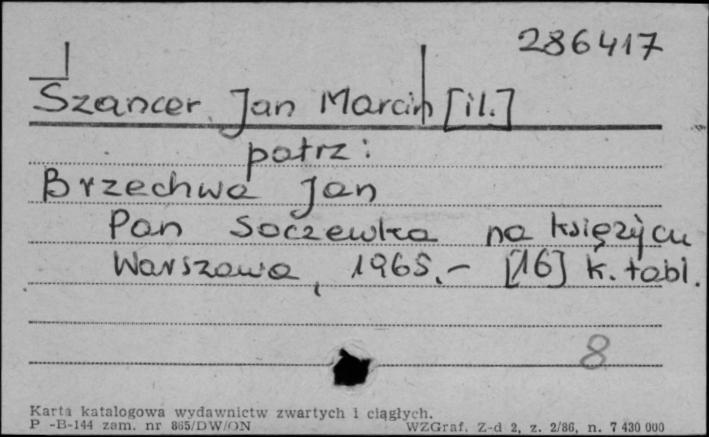 286417
Szancer Jan Marcin [il.]
patrz:
Brzechwa Jan
Pan Soczewka na księżycu
Warszawa, 1965.- [16] k. tabl.
8
Karta katalogowa wydawnictw zwartych i ciągłych.
P -B-144 zam. nr 865/DW/ON WZGraf. Z-d 2, z. 2/86, n. 7 430 000